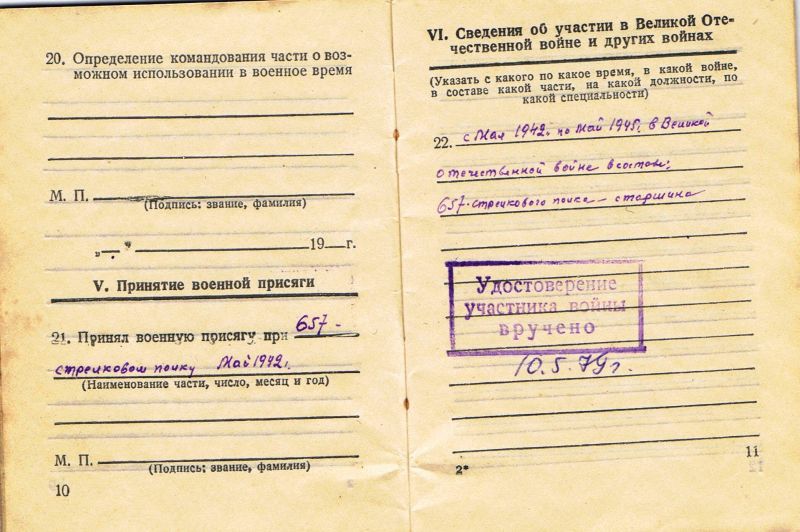 20. Определение командования части о воз-
можном использовании в военное время
М. П.
(Подпись: звание, фамилия)
„ " 19 г.
V. Принятие военной присяги
21. Принял военную присягу при 657-
стрелковом полку Май 1942г.
(Наименование части, число, месяц и год)
М. П.
(Подпись: звание, фамилия)
10
VI. Сведения об участии в Великой Оте-
чественной войне и других войнах
(Указать с какого по какое время, в какой войне,
в составе какой части, на какой должности, по
какой специальности)
22. с Мая 1942г. по Май 1945г. в Великой
отечественной войне в составе:
657-стрелкового полка — старшина
Удостоверение
участника войны
вручено
10.5.79г.
2*
11